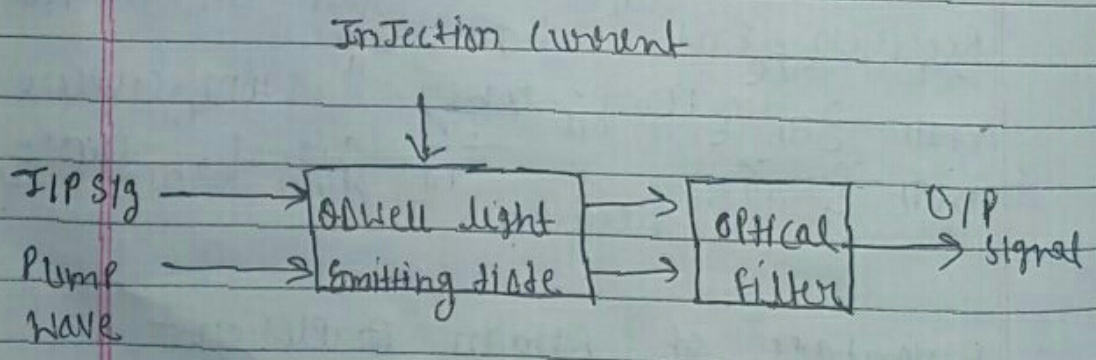 InJection Current
I/P Sig
Pump
Wave
light
Emitting diode
OPtical
Filter
O/P
Signal